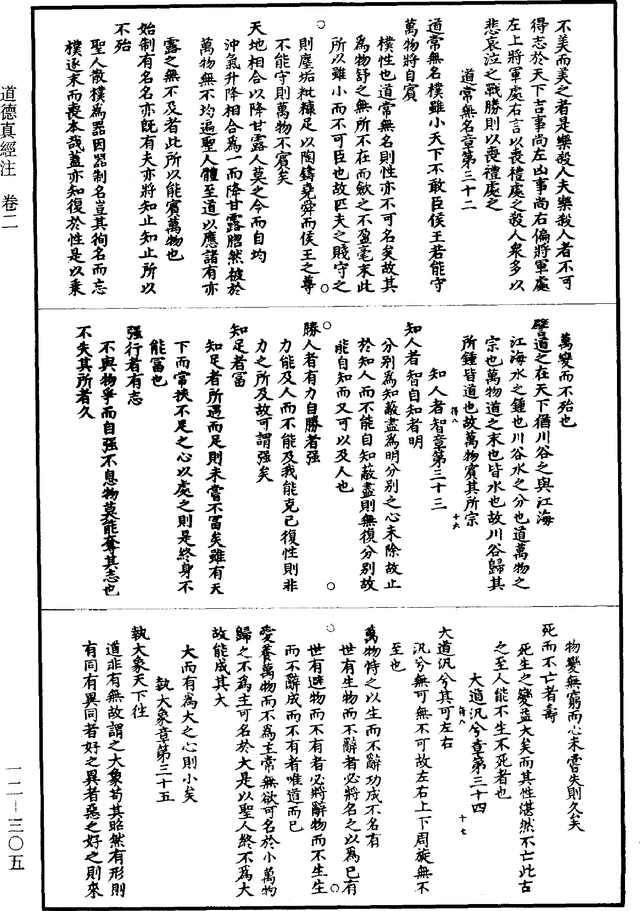 不美而美之者是樂殺人夫樂殺人者不可
得志於天下吉事尚左凶事尚右偏將軍處
左上將軍處右言以喪禮處之殺人衆多以
悲哀泣之戰勝則以喪禮處之
道常無名章第三十二
道常無名樸雖小天下不敢臣侯王若能守
萬物將自賓
樸性也道常無名則性亦不可名矣故其
為物舒之無所不在而斂之不盈毫末此
所以雖小而不可臣也故匹夫之賤守之
則塵垢粃糠足以陶鑄堯舜而侯王之尊
不能守則萬物不賓矣
天地相合以降甘露人莫之令而自均
沖氣升降相合為一而降甘露脗然被於
萬物無不均遍聖人體至道以應諸有亦
露之無不及者此所以能賓萬物也
始制有名名亦既有夫亦將知止知止所以
不殆
聖人散樸為器因器制名豈其徇名而忘
樸逐末而喪本哉蓋亦知復於性是以乘
萬變而不殆也
譬道之在天下猶川谷之與江海
江海水之鍾也川谷水之分也道萬物之
宗也萬物道之末也皆水也故川谷歸其
所鍾皆道也故萬物賓其所宗
知人者智章第三十三
知人者智自知者明
分別為知蔽盡為明分別之心未除故止
於知人而不能自知蔽盡則無復分別故
能自知而又可以及人也
勝人者有力自勝者强
力能及人而不能及我能克己復性則非
力之所及故可謂强矣
知足者富
知足者所遇而足則未嘗不富矣雖有天
下而常挾不足之心以處之則是終身不
能富也
强行者有志
不與物爭而自强不息物莫能奪其志也
不失其所者久
物變無窮而心未嘗失則久矣
死而不亡者壽
死生之變益大矣而其性湛然不亡此古
之至人能不生不死者也
大道汎兮章第三十四
大道汎兮其可左右
汎兮無可無不可故左右上下周旋無不
至也
萬物恃之以生而不辭功成不名有
世有生物而不辭者必將名之以為己有
世有避物而不有者必將辭物而不生生
而不辭成而不有者唯道而已
愛養萬物而不為主常無欲可名於小萬物
歸之不為主可名於大是以聖人終不為大
故能成其大
大而有為大之心則小矣
執大象章第三十五
執大象天下往
道非有無故謂之大象苟其昭然有形則
有同有異同者好之異者惡之好之則來
道德真經注　卷二
一二—三〇五